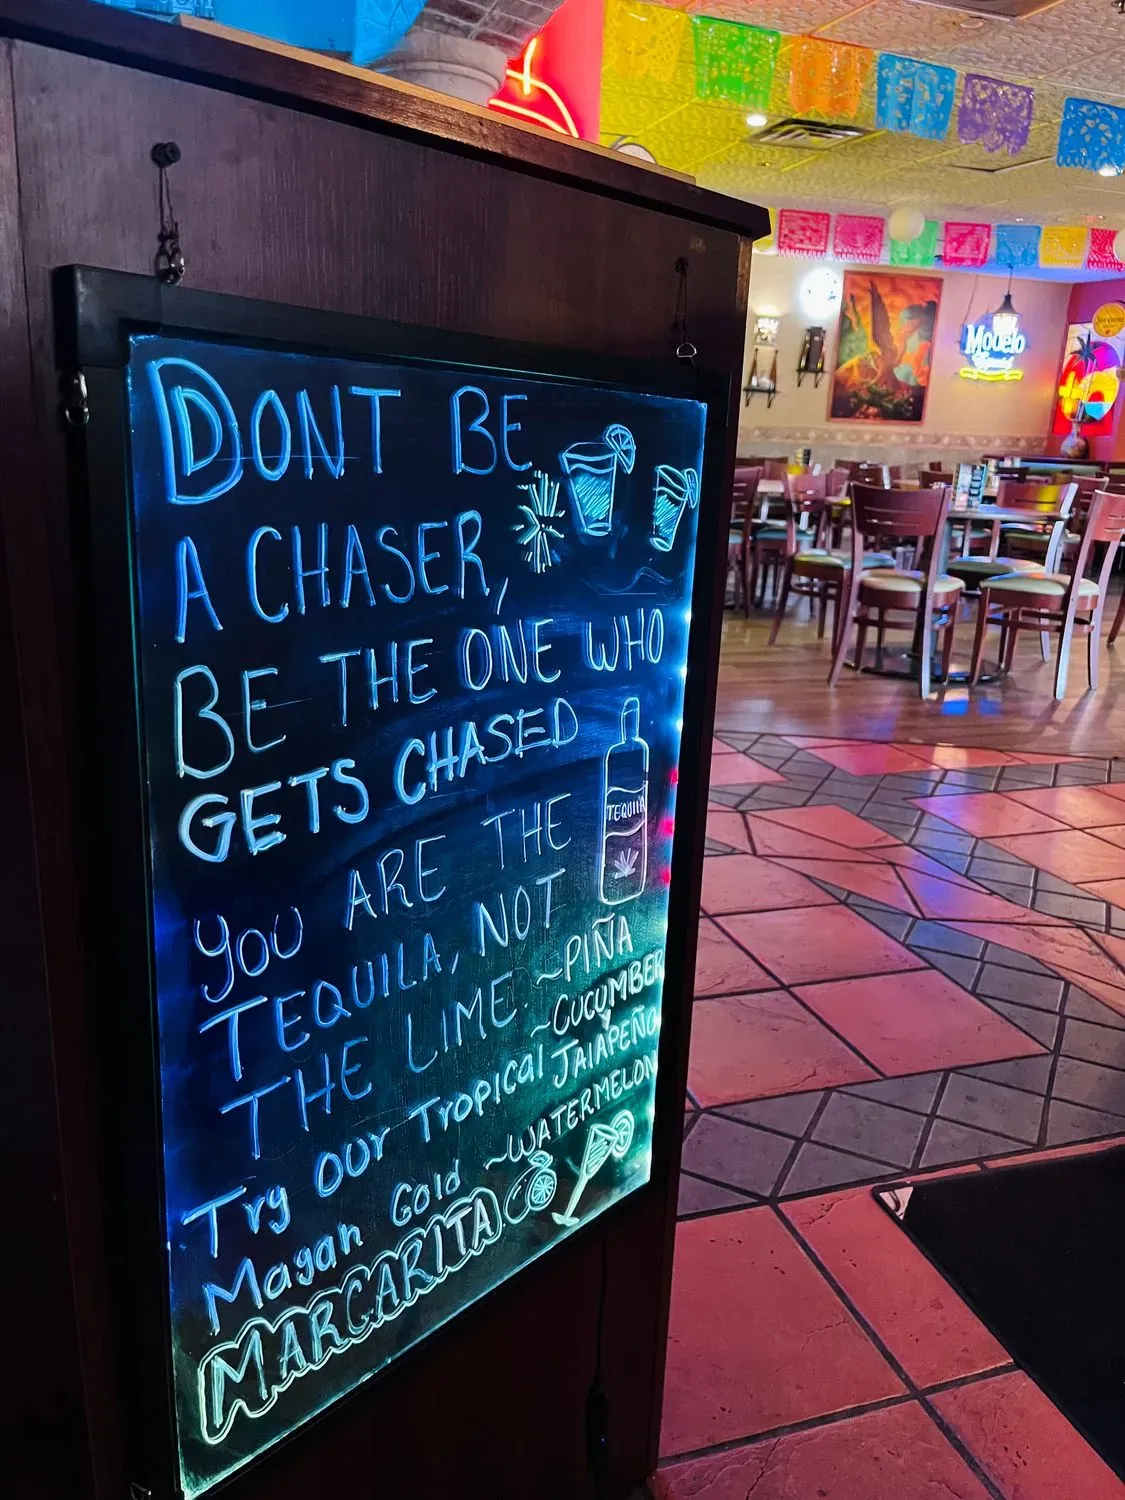 DONT BE
A CHASER,
BE THE ONE WHO
GETS CHASED
YOU ARE THE
TEQUILA, NOT
THE LIME.
TEQUILA
~PIÑA
~CUCUMBER
JALAPEÑO
~WATERMELON
Try our Tropical
Mayan Gold
MARGARITA
Modelo